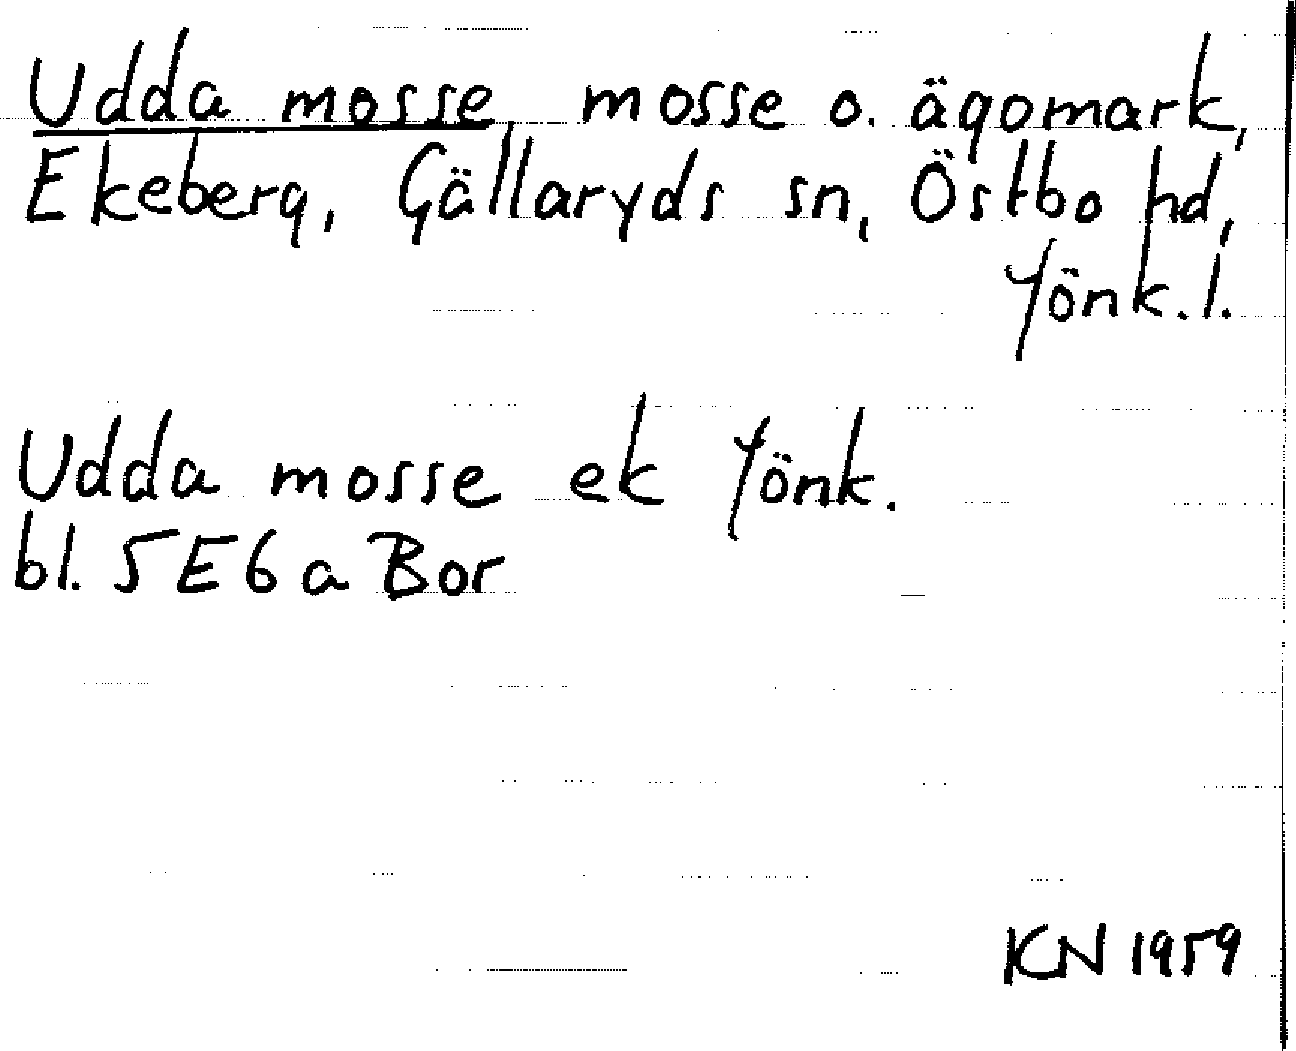 Udda mosse, mosse o. ägomark,
Ekeberg, Gällaryds sn, Östbo hd,
Jönk. l.
Udda mosse ek Jönk.
bl. 5E6a Bor
KN 1959